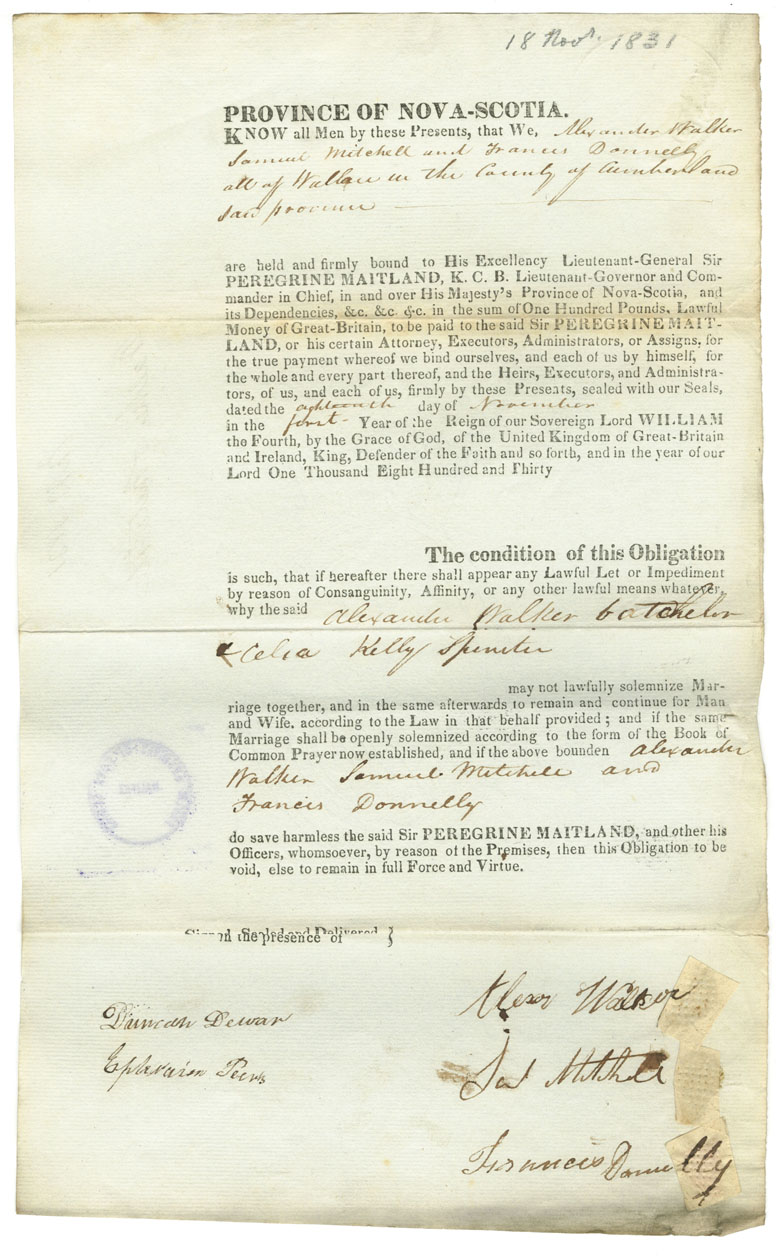 18 Novr. 1831
PROVINCE OF NOVA-SCOTIA.
KNOW all Men by these Presents, that We, Alexander Walker
Samuel Mitchell and Francis Donnelly
all of Wallace in the County of Cumberland
said province
are held and firmly bound to His Excellency Lieutenant-General Sir
PEREGRINE MAITLAND, K. C. B. Lieutenant-Governor and Com-
mander in Chief, in and over His Majesty's Province of Nova-Scotia, and
its Dependencies, &c. &c. &c. in the sum of One Hundred Pounds, Lawful
Money of Great-Britain, to be paid to the said Sir PEREGRINE MAIT-
LAND, or his certain Attorney, Executors, Administrators, or Assigns, for
the true payment whereof we bind ourselves, and each of us by himself, for
the whole and every part thereof, and the Heirs, Executors, and Administra-
tors, of us, and each of us, firmly by these Presents, sealed with our Seals,
dated the day of November
in the first Year of the Reign of our Sovereign Lord WILLIAM
the Fourth, by the Grace of God, of the United Kingdom of Great-Britain
and Ireland, King, Defender of the Faith and so forth, and in the year of our
Lord One Thousand Eight Hundred and Thirty
The condition of this Obligation
is such, that if hereafter there shall appear any Lawful Let or Impediment
by reason of Consanguinity, Affinity, or any other lawful means whatever,
why the said Alexander Walker batchelor
& Celia Kelly Spinster
may not lawfully solemnize Mar-
riage together, and in the same afterwards to remain and continue for Man
and Wife, according to the Law in that behalf provided; and if the same
Marriage shall be openly solemnized according to the form of the Book of
Common Prayer now established, and if the above bounden Alexander
Walker Samuel Mitchell and
Francis Donnelly
do save harmless the said Sir PEREGRINE MAITLAND, and other his
Officers, whomsoever, by reason of the Premises, then this Obligation to be
void, else to remain in full Force and Virtue.
Signed Sealed and Delivered
in the presence of }
Alexr Walker
Duncan Dewar
Saml Mitchell
Ephraim
Francis Donnelly